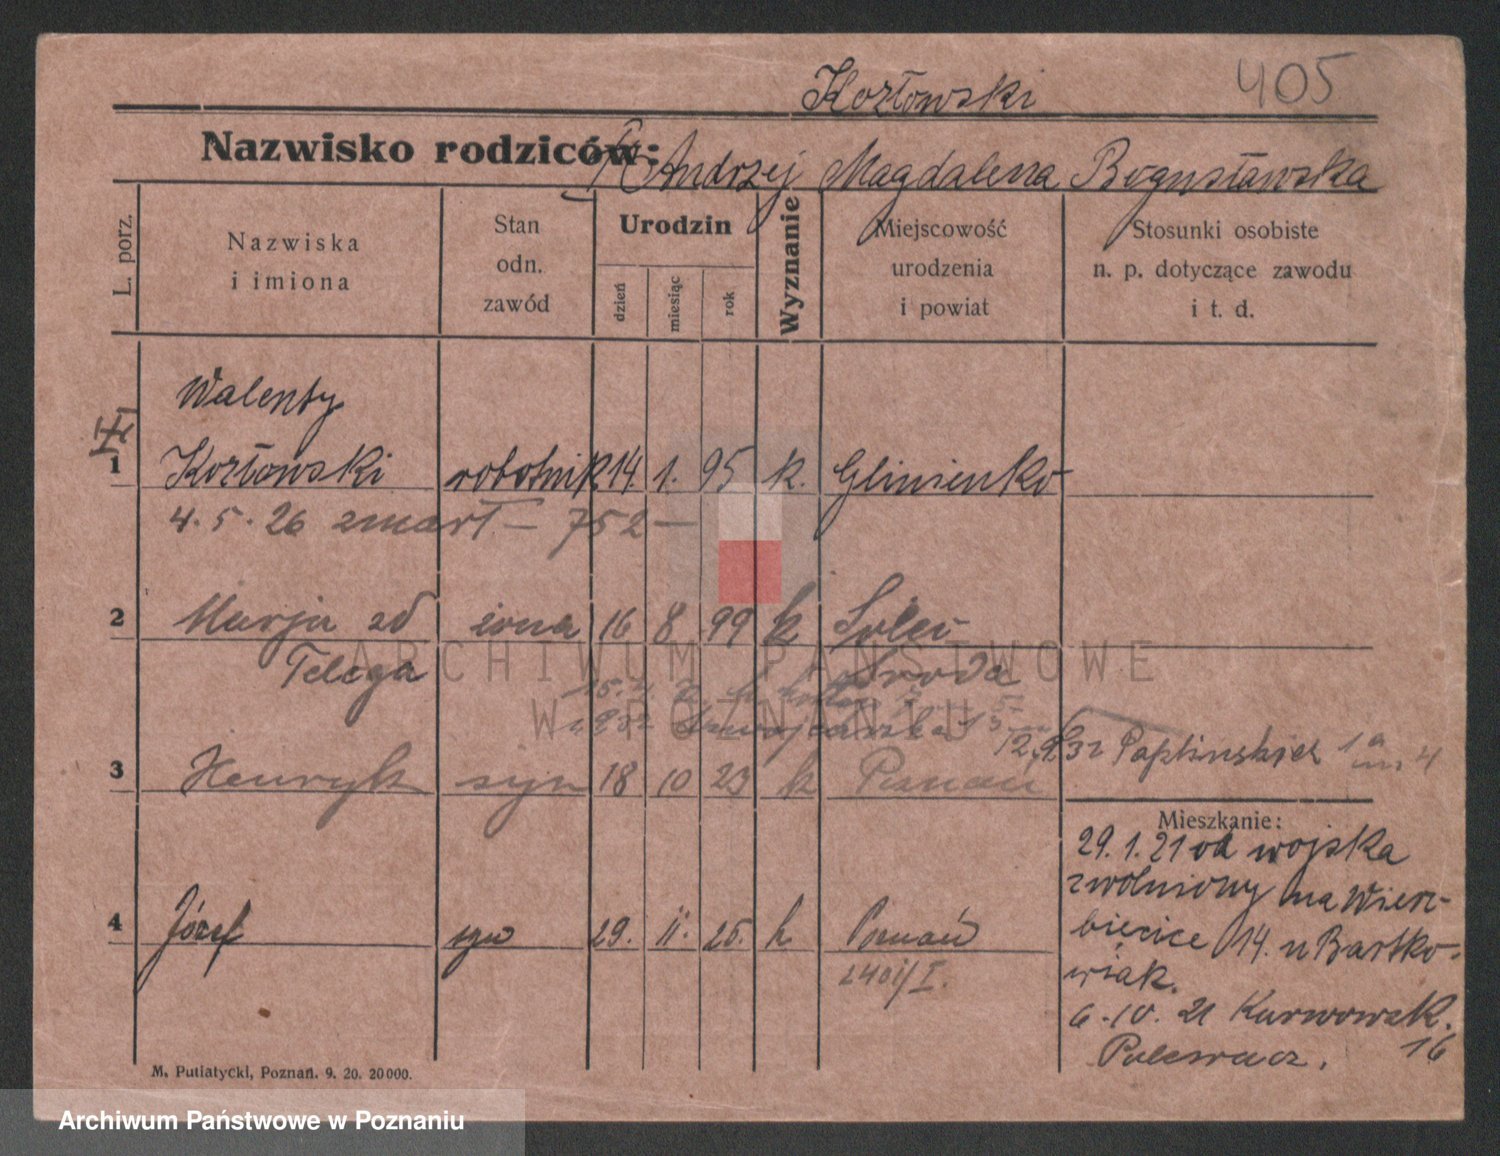 Kozłowski
405
Nazwisko rodziców: Andrzej Magdalena Bogusławska
L. porz.
Nazwiska i imiona
Stan odn. zawód
Urodzin
dzień
miesiąc
rok
Wyznanie
Miejscowość urodzenia i powiat
Stosunki osobiste n. p. dotyczące zawodu i t. d.
Walenty
1 Kozłowski robotnik 14. 1. 95 k. Glinienko
4. 5. 26 zmarł – 752 –
2 Marja zd żona 16 8 99 k Solec
Telega Środa
12.9.32 Paplińskich 1a m. 4
3 Henryk syn 18 10 23 k Poznań
Mieszkanie:
29. 1. 21 od wojska
zwolniony na Wierz-
4 Józef syn 29. II. 26. k Poznań
biecice 14. u Bartko-
wiak.
6-10. 21 Karwowsk.
16
Palewacz.
M. Putiatycki, Poznań. 9. 20. 20000.
ARCHIWUM PAŃSTWOWE
W POZNANIU
Archiwum Państwowe w Poznaniu